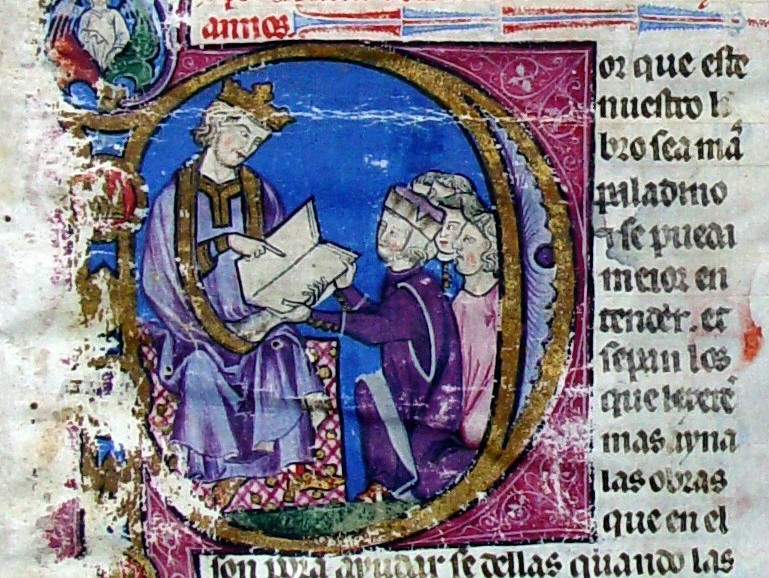 annos.
or que este
nuestro li
bro sea mã
paladino
⁊ se pueda
meior en
tender. et
sepan los
que leyerẽ
mas ayna
las obras
que en el
son pora ayudar se dellas quando las